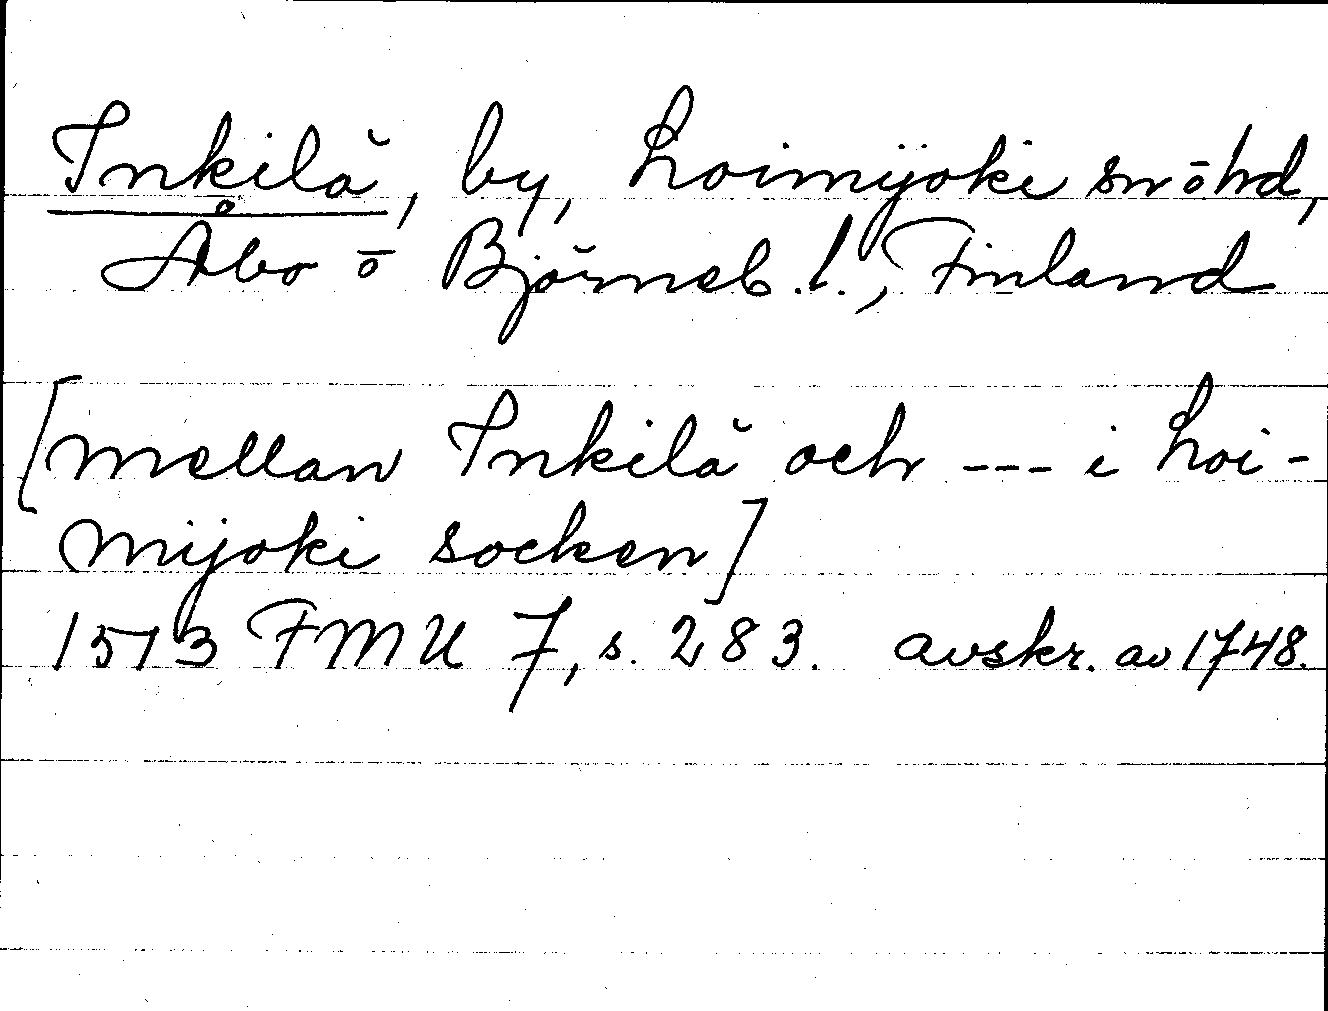 Inkilä, by, Loimijoki sn o hd,
Åbo o Björneb. l., Finland
[mellan Inkilä och --- i Loi-
mijoki socken]
1513 FMU 7, s. 283. avskr. av 1748.